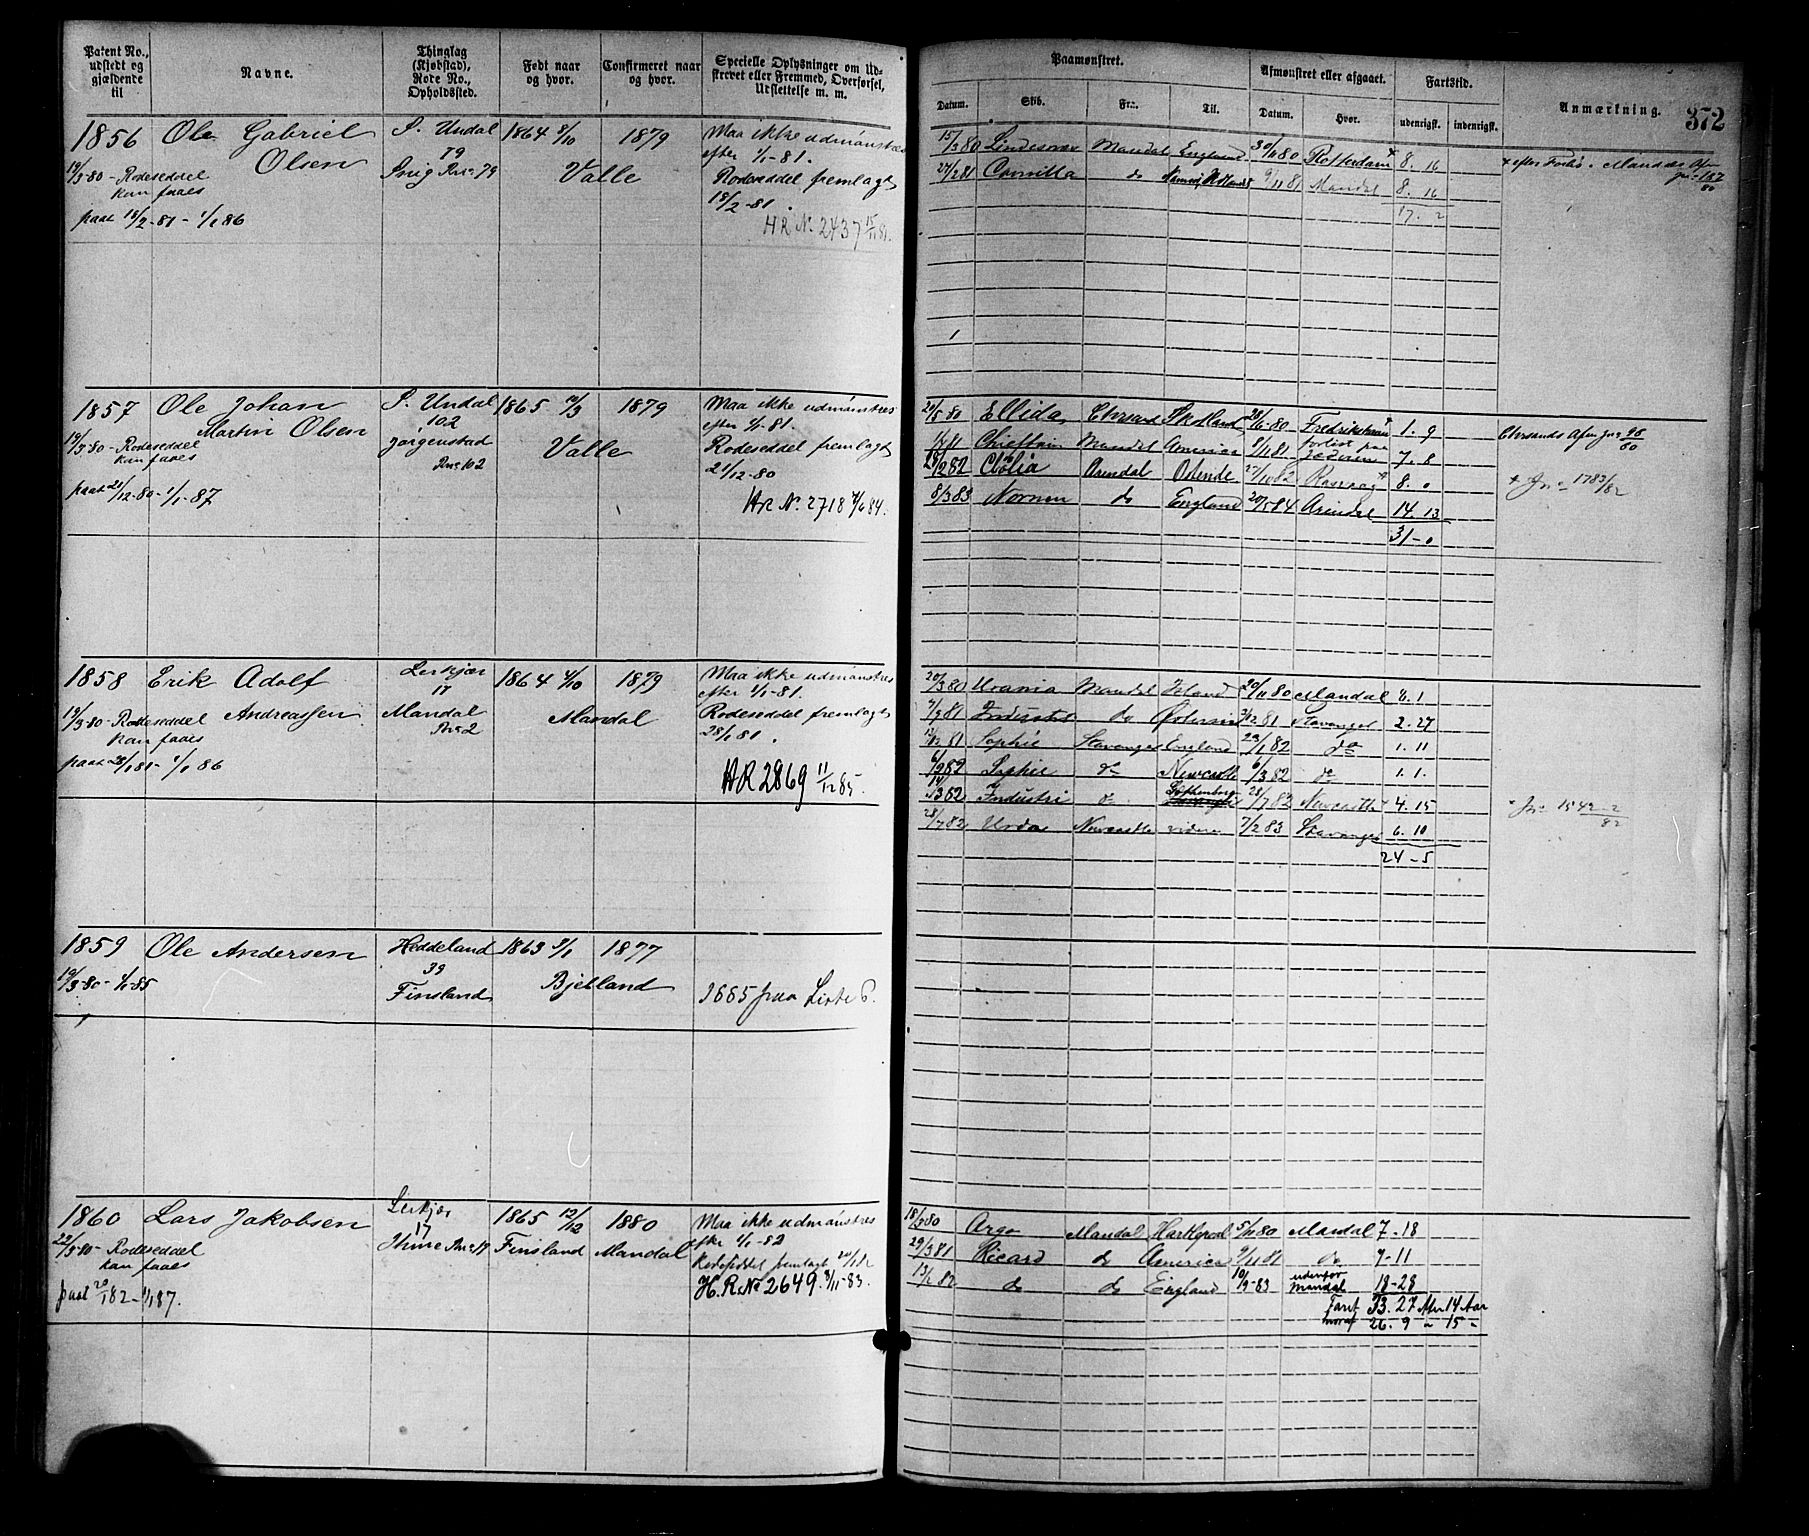 Patent No., udstedt og gjældende til
Navne.
Thinglag (Kjøbstad), Rode No., Opholdssted.
Født naar og hvor.
Confirmeret naar og hvor.
Specielle Oplysninger om Udskrevet eller Fremmed, Overførsel, Udslettelse m. m.
Paamønstret.
Datum.
Skib.
Fra.
Til.
Afmønstret eller afgaaet.
Datum.
Hvor.
Fartstid.
udenrigsk.
indenrigsk.
Anmærkning.
372
1856 Ole Gabriel Olsen
S. Undal 79
1864 8/10 1879
Valle
19/3-80- Rodeseddel
kan faaes
paat 18/2-81 - 1/1 86
Maa ikke udmønstres
efter 1/1-81.
Rodeseddel fremlagt
18/2-81.
HR No 2437 15/11 81.
15/3 80 Mandal England 30/11 80 Rotterdam 8. 16
24/2 81 do 9/11 81 Mandal 8. 16
17. 2
1857 Ole Johan
Martin Olsen
S. Undal
102
Jørgenstad
Rno 102
1865 1879
Valle
19/3-80- Rodeseddel
kan faaes
paat 21/12-80-1/1-87
Maa ikke udmønstres
efter 1/1-81.
Rodeseddel fremlagt
21/12-80
HR No 2718 84.
20/5 80 Ellida Chrsand Skotland 1. 9
Chieftain Mandal America 8/1 81 forlist paa 7. 8
Clölia Arendal Ostende 27/10 82 8. 0
8/3 83 Nornen do England 20/5 84 Arendal 14. 13
31-0
Chrsands Afm Jno 98/80
+ Jno 1783/82
1858 Erik Adolf
Andreassen
Lerkjær
17
Mandal
Rno 2
1864 4/10 1879
Mandal
19/3-80- Rodeseddel
kan faaes
paat 28/1 81- 1/1 86
Maa ikke udmønstres
efter 1/1-81.
Rodeseddel fremlagt
28/1 81.
HR 2869 11/12 85-
20/3 80 Urania Mandal 20/11 80 Mandal 8. 1
7/9 81 Industri do Østersø 81 Stavanger 2. 27
81 Sophie Stavanger England 23/1 82 do 1. 11
82 Sophie do Newcastle 6/3 82 do 1. 1.
82 Industri do Gøthenborg 28/7 82 Newcastle 4. 15
28/7 82 Urda Newcastle videre 7/2 83 Stavanger 6. 10
24-5
Jno 1542-2/82
1859 Ole Andersen
Heddeland
39
Finsland
1863 9/1 1877
Bjelland
19/3-80- 1/1-85
1665 paa Liste C.
1860 Lars Jakobsen
Lerkjær
17
Hime Rno 17
1865 12/12 1880
Finsland Mandal
22/3-80- Rodeseddel
kan faaes
paat 20/1 82-1/1 87.
Maa ikke udmønstres
efter 1/1-82
Rodeseddel fremlagt 20/1 82
H.R.No 2649. 3/11-83.
18/3 80 Argo Mandal Hartlepool 5/10 80 Mandal 7-18
29/3 81 Ricard do America 9/11 81 do 7-11
13/1 82 do do England 10/9-83 udenfor Mandal 18-28
Fart 33. 27 Afm 14 Aar
hvoraf 26. 9 " 15 "